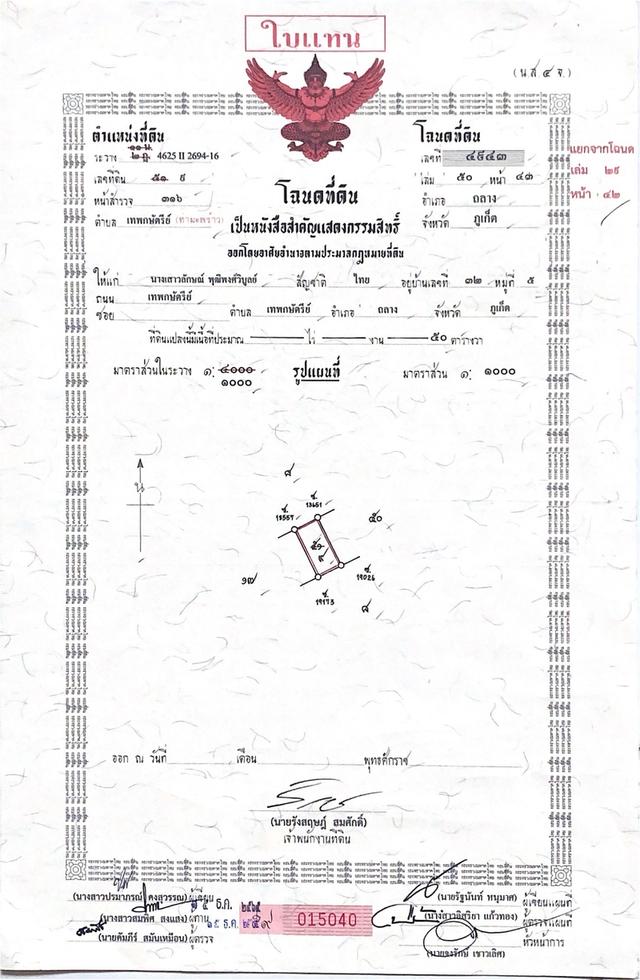 ใบแทน
(น.ส ๔ จ.)
ตำแหน่งที่ดิน
โฉนดที่ดิน
ระวาง 4625 II 2694-16
เลขที่ ๔๕๔๓
แยกจากโฉนด
เลขที่ดิน ๕๑ ๙
เล่ม ๕๐ หน้า ๔๓
เล่ม ๒๙
หน้าสำรวจ ๓๑๖
โฉนดที่ดิน
อำเภอ ถลาง
หน้า ๔๒
ตำบล เทพกษัตรีย์
เป็นหนังสือสำคัญแสดงกรรมสิทธิ์
จังหวัด ภูเก็ต
ออกโดยอาศัยอำนาจตามประมวลกฎหมายที่ดิน
ให้แก่ นางเสาวลักษณ์ พุฒิพงศ์วิบูลย์ สัญชาติ ไทย อยู่บ้านเลขที่ ๓๒ หมู่ที่ ๕
ถนน เทพกษัตรีย์
ซอย ตำบล เทพกษัตรีย์ อำเภอ ถลาง จังหวัด ภูเก็ต
ที่ดินแปลงนี้มีเนื้อที่ประมาณ ไร่ งาน ๕๐ ตารางวา
มาตราส่วนในระวาง ๑: ๔๐๐๐ รูปแผนที่ มาตราส่วน ๑: ๑๐๐๐
๑๐๐๐
น
๘
๕๐
๕๑
๙
๑๗
๘
ออก ณ วันที่ เดือน พุทธศักราช
(นายรังสฤษฎ์ สมศักดิ์)
เจ้าพนักงานที่ดิน
(นายรัฐนันท์ หนุมาศ) ผู้เขียนแผนที่
015040
ผู้ตรวจแผนที่
(นายคัมภีร์ สมันเหมือน) ผู้ตรวจ
หัวหน้าการ